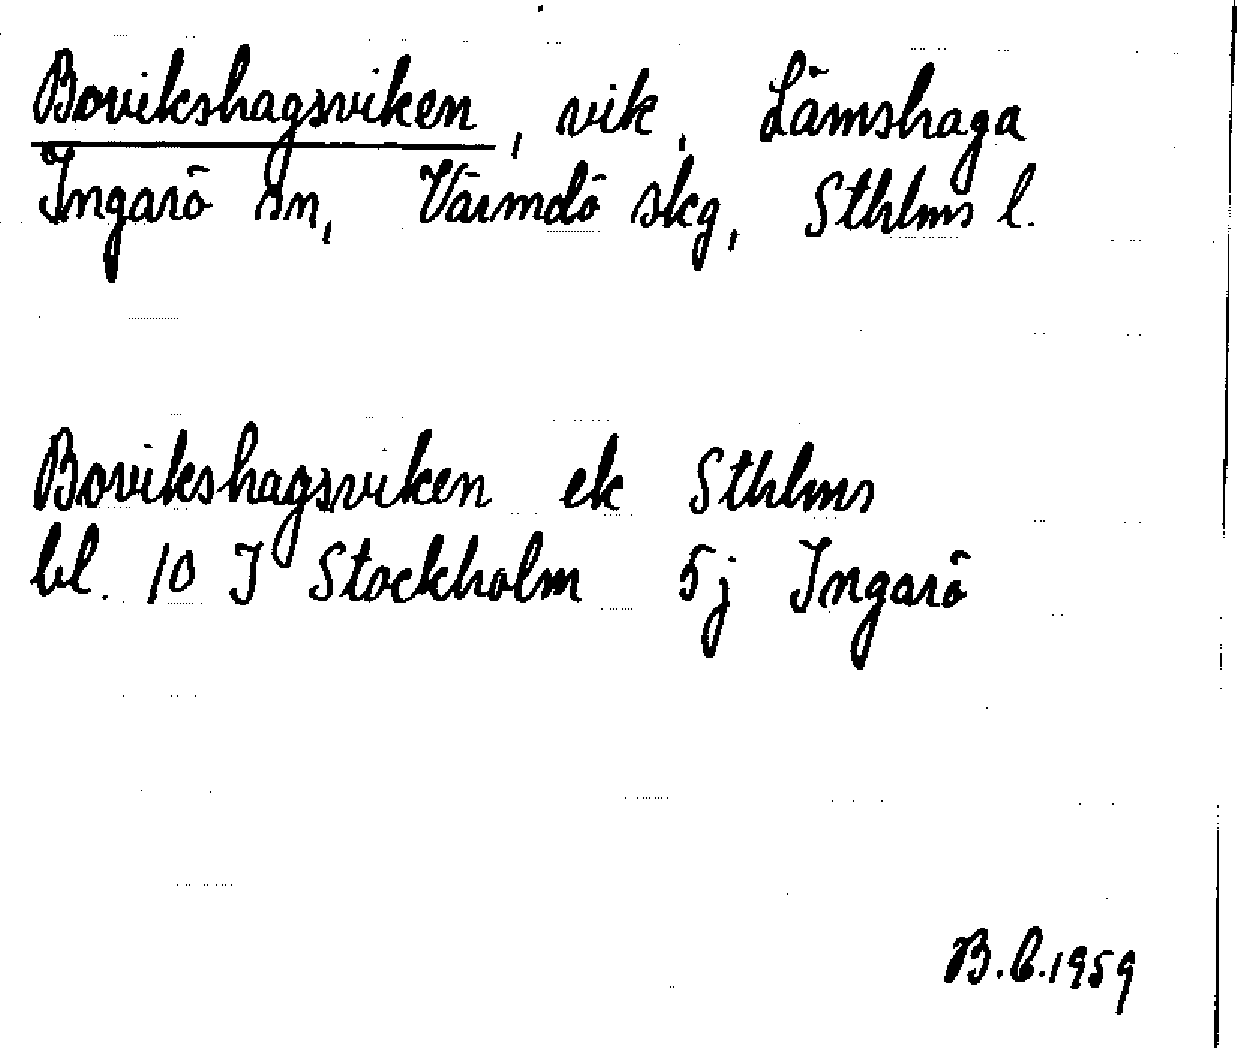 Bovikshagsviken, vik, Lämshaga
Ingarö sn, Värmdö skg, Sthlms l.
Bovikshagsviken ek Sthlms
bl. 10 I Stockholm 5j Ingarö
B.C.1959